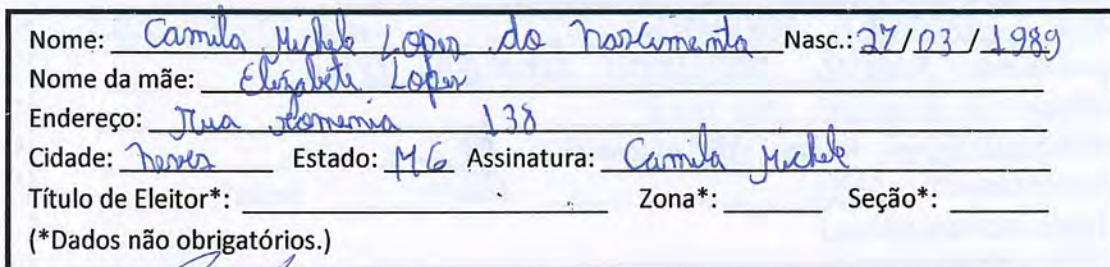 Nome: Camila Michele Lopes do Nascimento Nasc.: 27/03/1989
Nome da mãe: Elizabete Lopes
Endereço: Rua Romenia 138
Cidade: Neves Estado: MG Assinatura: Camila Michele
Título de Eleitor*: Zona*: Seção*:
(*Dados não obrigatórios.)